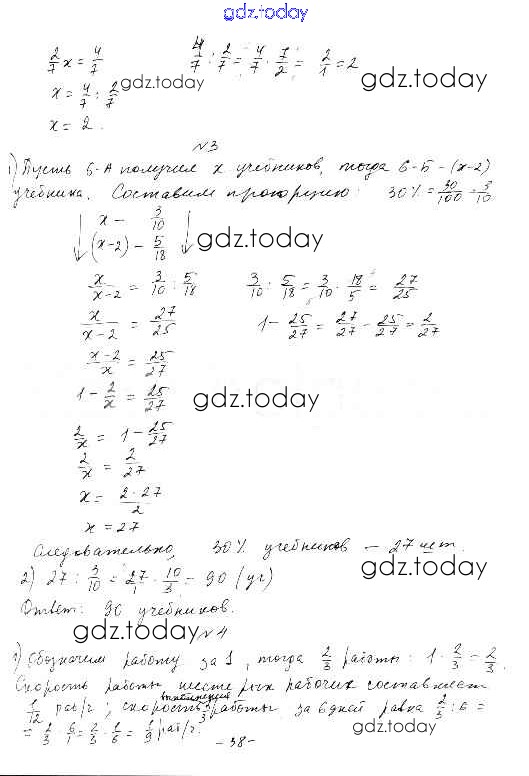 gdz.today
2/7 x = 4/7    4/7 : 2/7 = 4/7 · 7/2 = 2/1 = 2
x = 4/7 : 2/7 gdz.today gdz.today
x = 2.
№3
1) Пусть 6-А получил x учебников, тогда 6-Б - (x-2)
учебника. Составим пропорцию: 30% = 30/100 = 3/10
x - 3/10
(x-2) - 5/18 gdz.today
x/(x-2) = 3/10 : 5/18    3/10 : 5/18 = 3/10 · 18/5 = 27/25
x/(x-2) = 27/25    1 - 25/27 = 27/27 - 25/27 = 2/27
(x-2)/x = 25/27
1 - 2/x = 25/27 gdz.today
2/x = 1 - 25/27
2/x = 2/27
x = (2·27)/2
x = 27
Следовательно, 30% учебников - 27 шт.
2) 27 : 3/10 = 27/1 · 10/3 = 90 (уч) gdz.today
Ответ: 90 учебников.
gdz.today №4
1) Обозначим работу за 1, тогда 2/3 работы: 1 · 2/3 = 2/3.
Скорость работы шестерых рабочих составляет
выполнения
1/12 раб/ч; скорость 2/3 работы за 6 дней равна 2/3 : 6 =
= 2/3 : 6/1 = 2/3 · 1/6 = 1/9 раб/ч. gdz.today
- 38 -